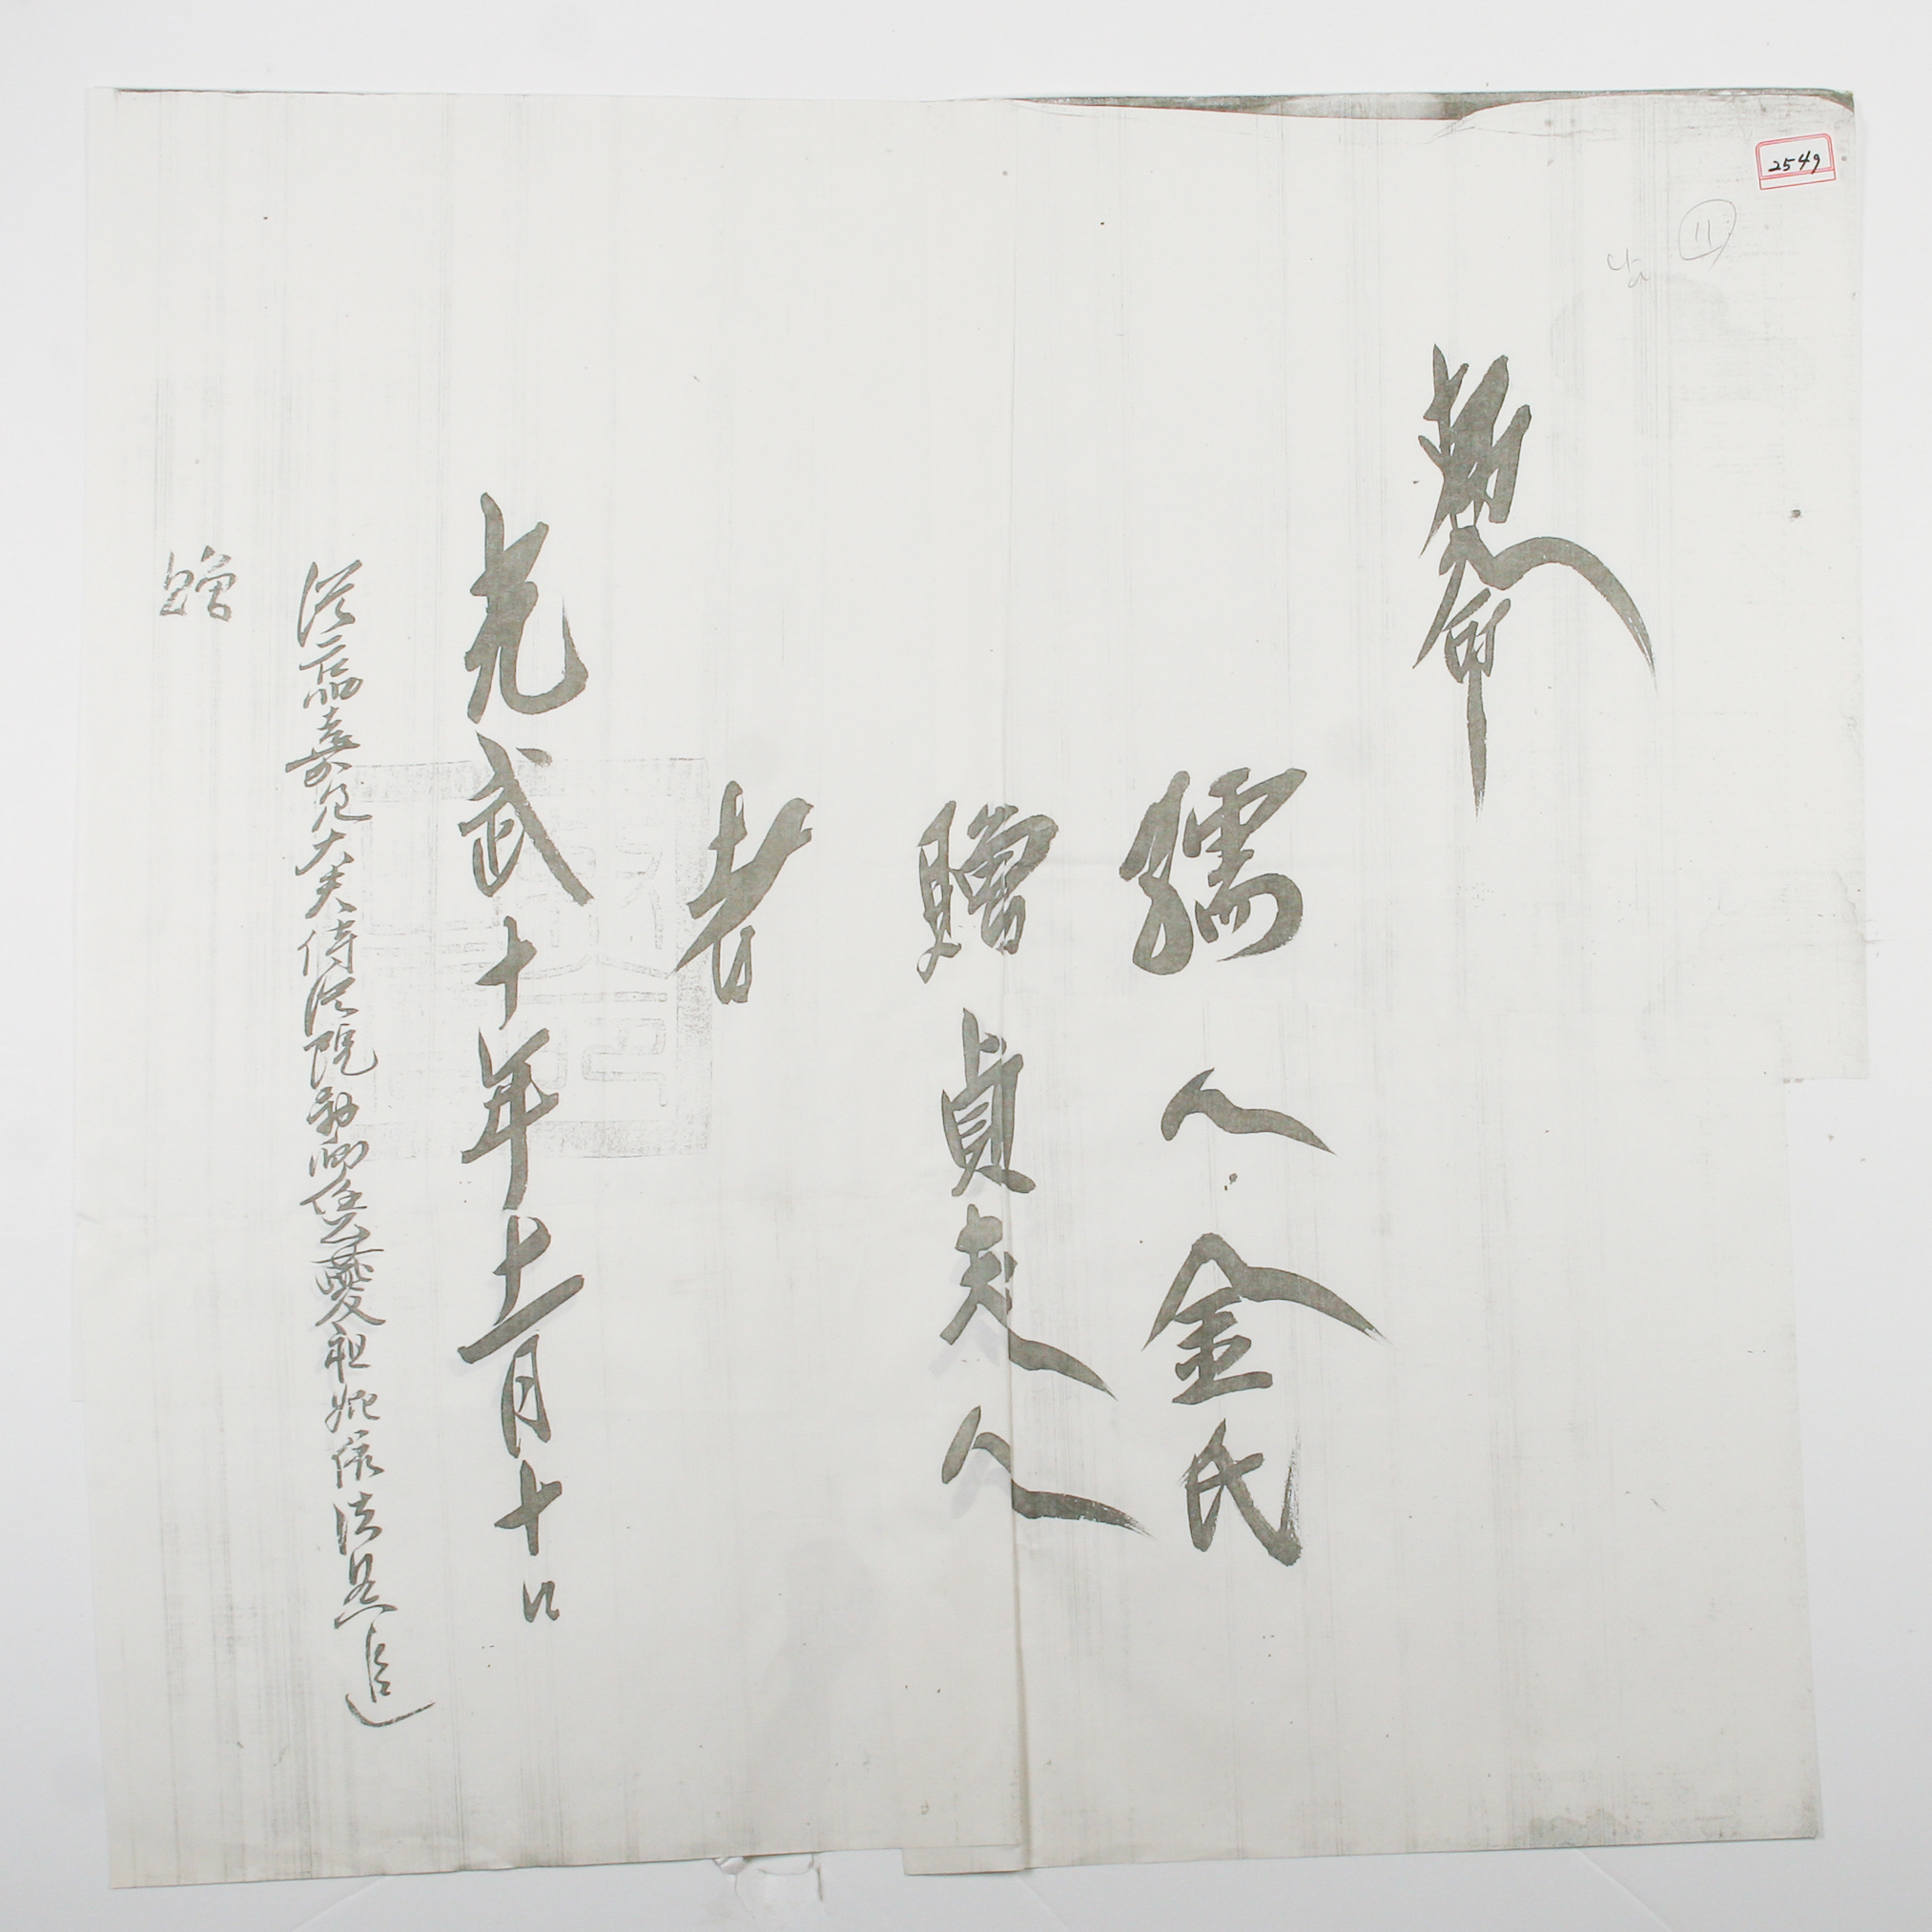 2549
11
勅命
孺人金氏
贈貞夫人
者
光武十年十二月十日
從二品嘉善大夫侍從院副卿爕祖妣依法典追
贈